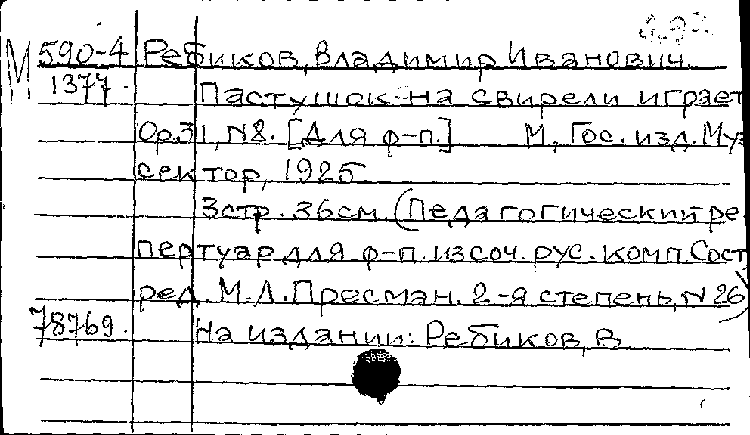 М 590-4 Ребиков, Владимир Иванович.
1377. Пастушок на свирели играет
Op.31, N8. [Для ф-п.] М, Гос. изд. Муз
сектор, 1925
3стр. 36см (Педагогический ре
пертуар для ф-п. из соч. рус. комп. Сост
ред. М.Л. Пресман. 2-я степень, N 26)
78769. На издании: Ребиков, В.